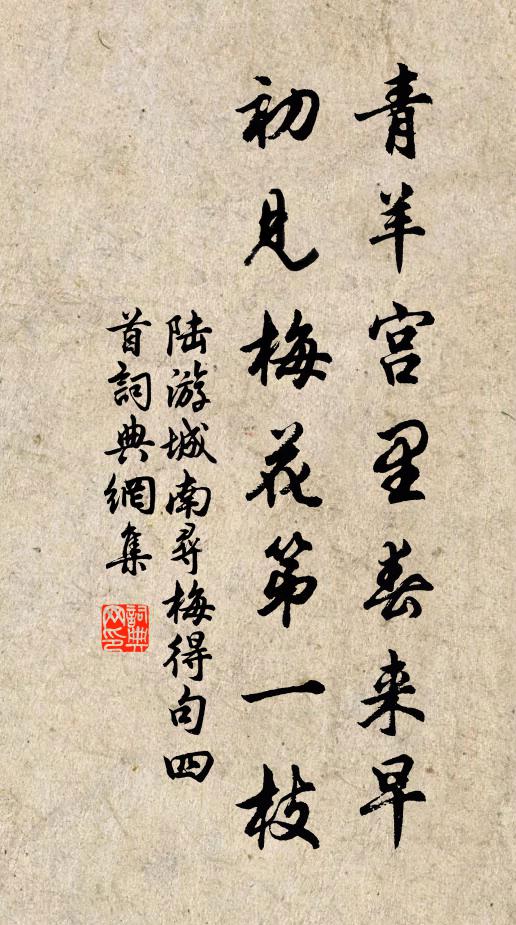 青羊宫里春来早
初见梅花第一枝
陆游城南寻梅得句四
首詞典網集
詞典网印